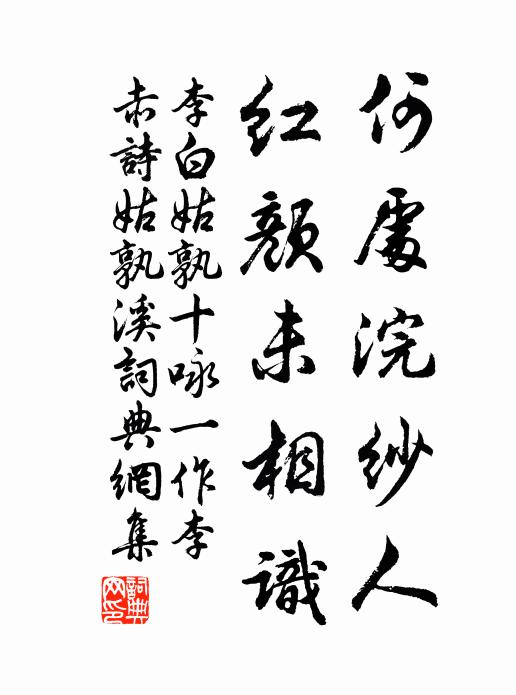 何處浣紗人
紅顏未相識
李白姑孰十咏一作李
赤詩姑孰溪詞典網集
詞典
网印